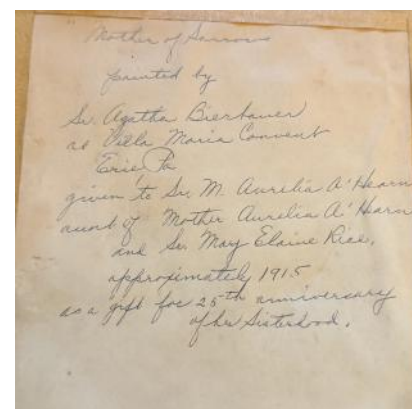 "Mother of Sorrows
painted by
Sr. Agatha Bierbauer
at Villa Maria Convent
Erie, Pa
given to Sr. M. Aurelia A'Hearn
aunt of Mother Aurelia A'Hearn
and Sr. Mary Elaine Rice,
approximately 1915
as a gift for 25th anniversary
of her Sisterhood.